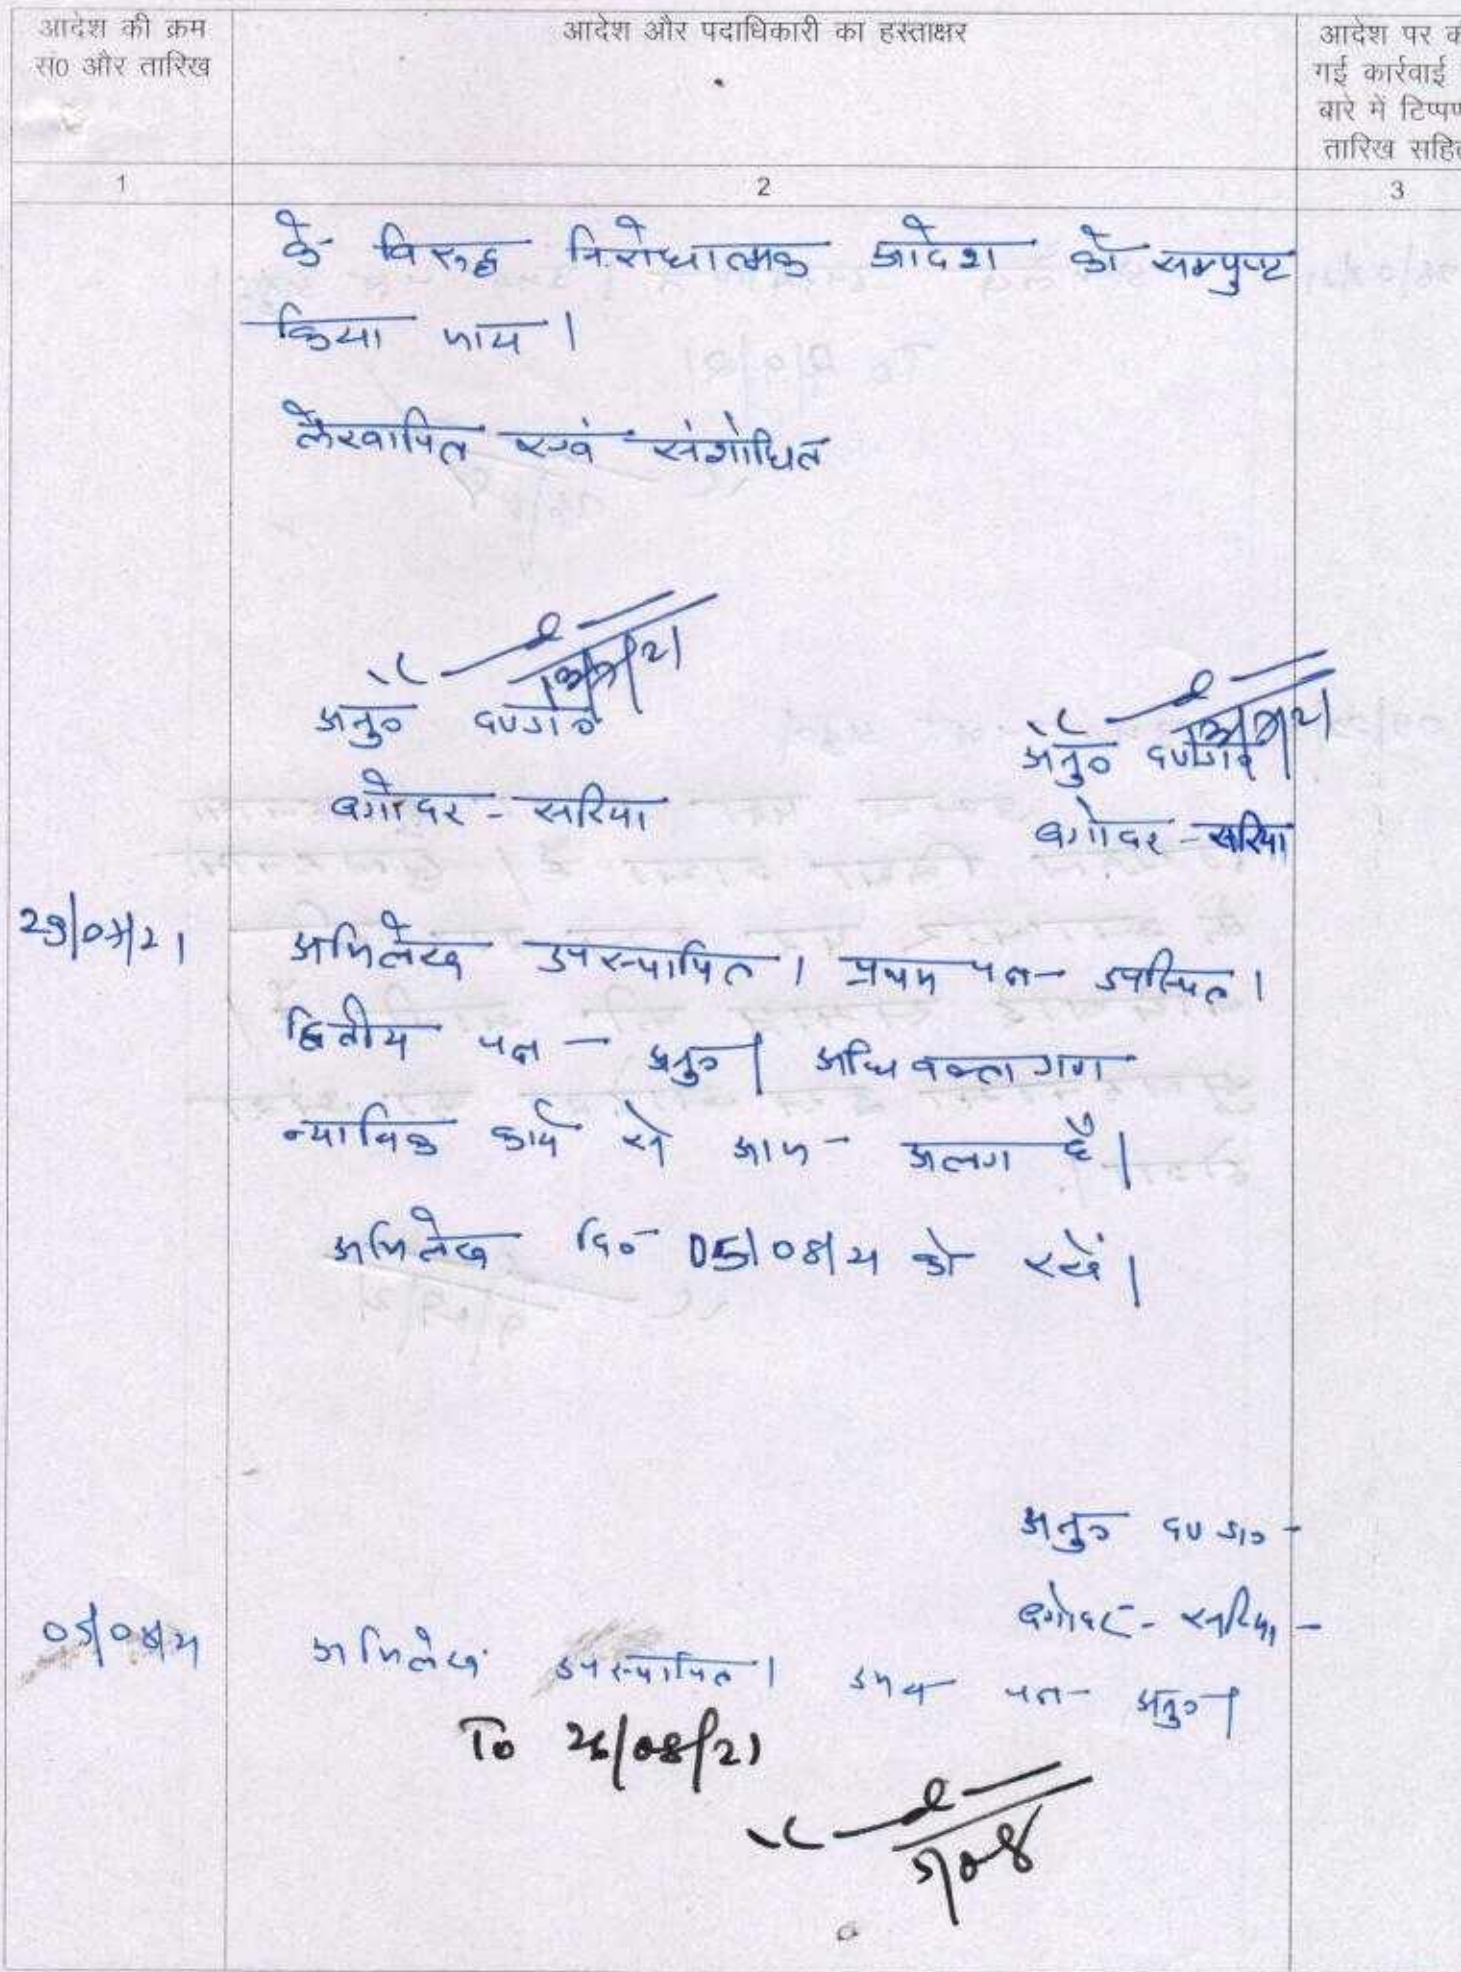 आदेश की क्रम
सं0 और तारिख
आदेश और पदाधिकारी का हस्ताक्षर
आदेश पर क
गई कार्रवाई
बारे में टिप्पण
तारिख सहित
1
2
3
के विरूद्ध निरोधात्मक आदेश को सम्पुष्ट
किया जाय ।
लेखापित एवं संशोधित
अनु० दण्डा०
बगोदर - सरिया
अनु० दण्डा०
बगोदर - सरिया
29/07/21 अभिलेख उपस्थापित । प्रथम पक्ष - उपस्थित ।
द्वितीय पक्ष - अनु० | अधिवक्तागण
न्यायिक कार्य से आज अलग है |
अभिलेख दि० 05/08/21 को रखें |
अनु० दण्डा०
बगोदर - सरिया
05/08/21 अभिलेख उपस्थापित । उभय पक्ष - अनु० |
To 26/08/21
5/08